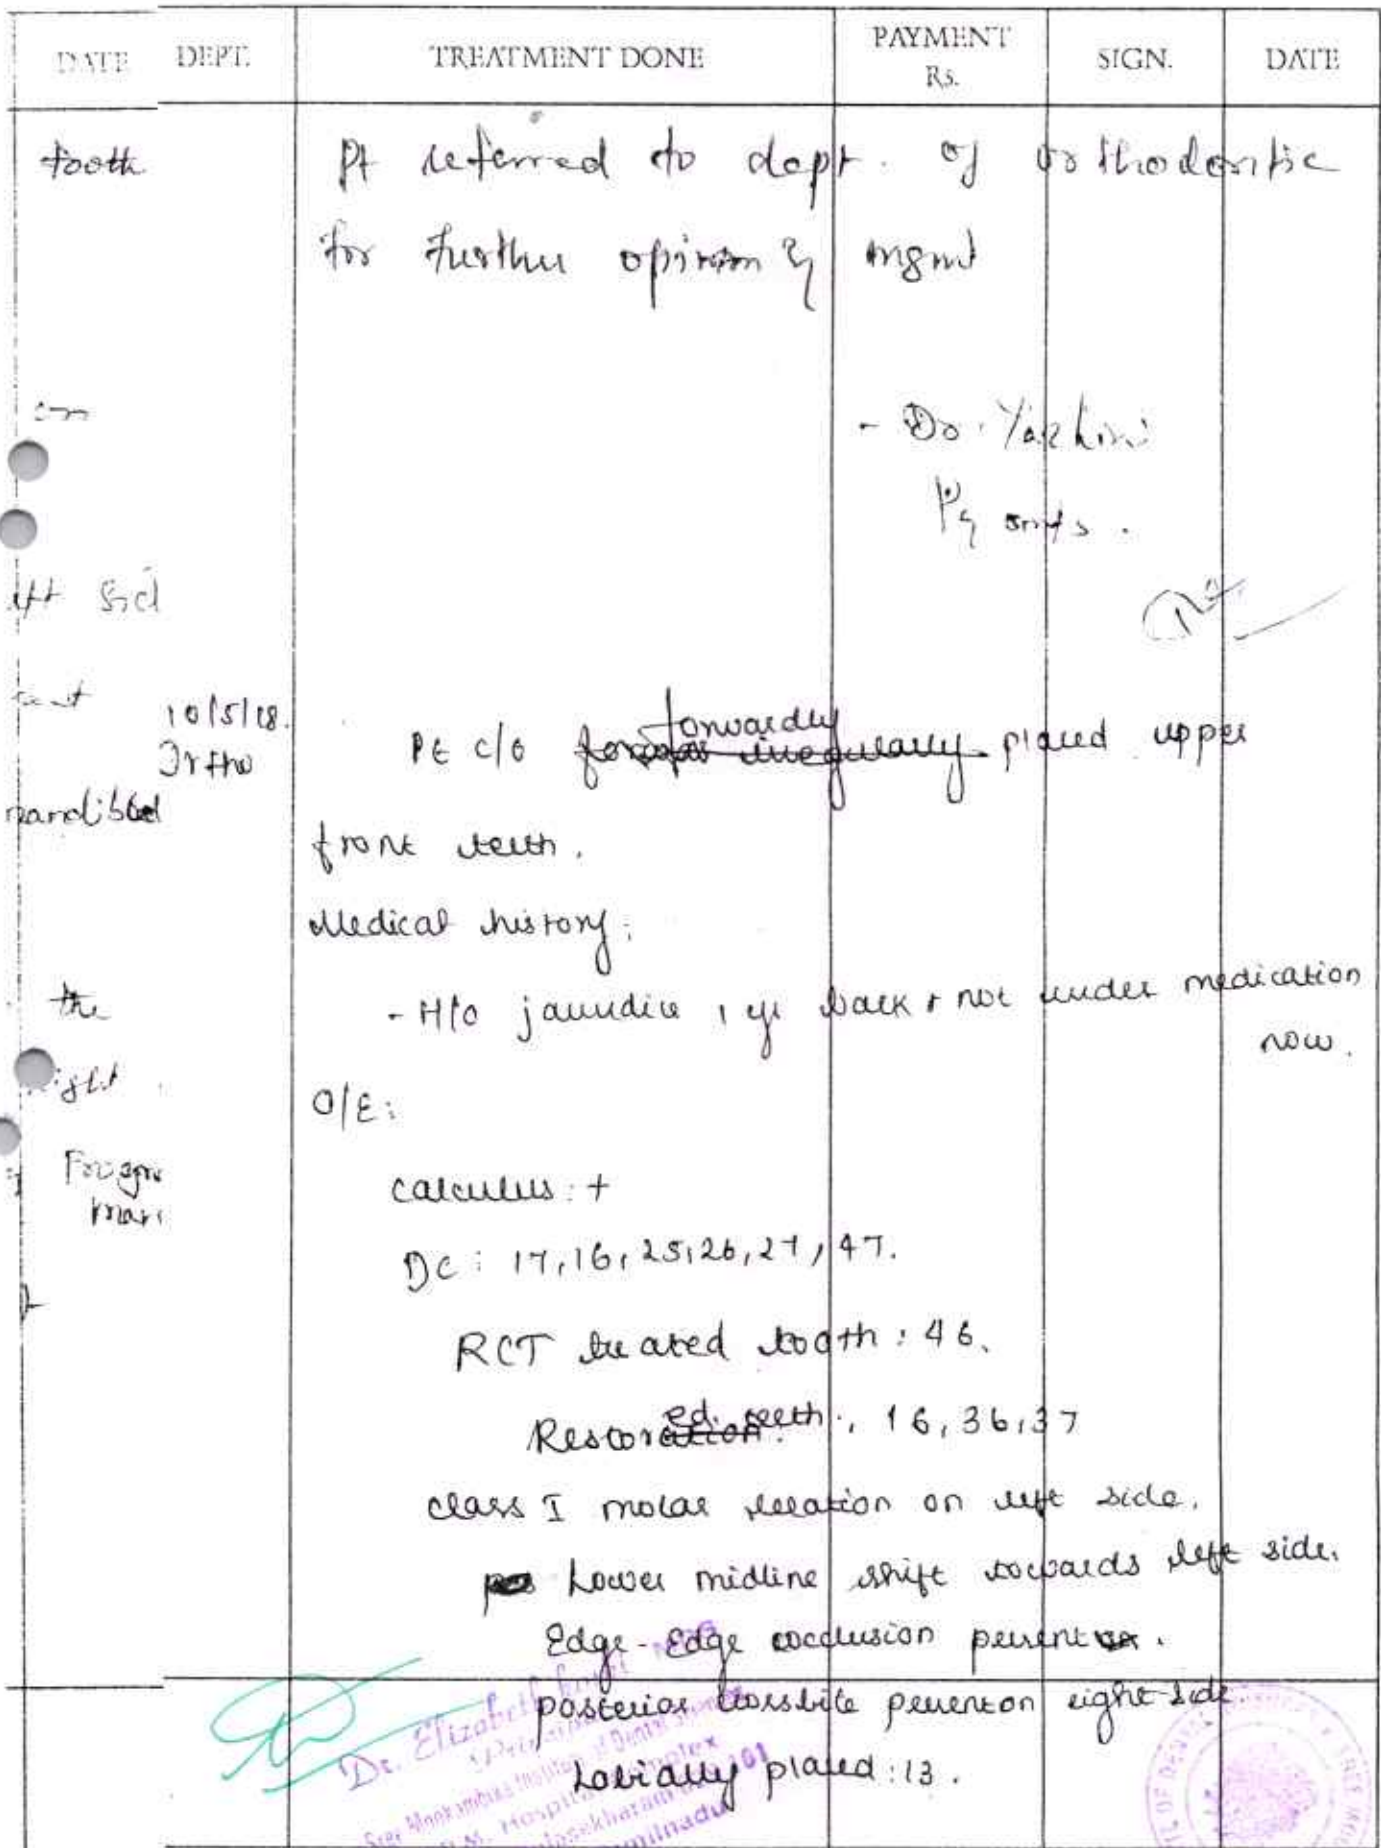 DATE DEPT. TREATMENT DONE PAYMENT Rs. SIGN. DATE
tooth Pt referred to dept. of orthodontic
for further opinion & mgmt
- Dr. Yazhini
10/5/18.
Ortho
Pt c/o forwardly placed upper
mandibled
front teeth.
Medical history:
the
- H/o jaundice 1 yr back & not under medication
now.
O/E:
calculus: +
DC: 17, 16, 25, 26, 27, 47.
RCT treated tooth: 46.
Restored teeth: 16, 36, 37
class I molar relation on left side.
Lower midline shift towards left side.
Edge-Edge occlusion present.
posterior crossbite present on right side.
Labially placed: 13.
Dr. Elizabeth